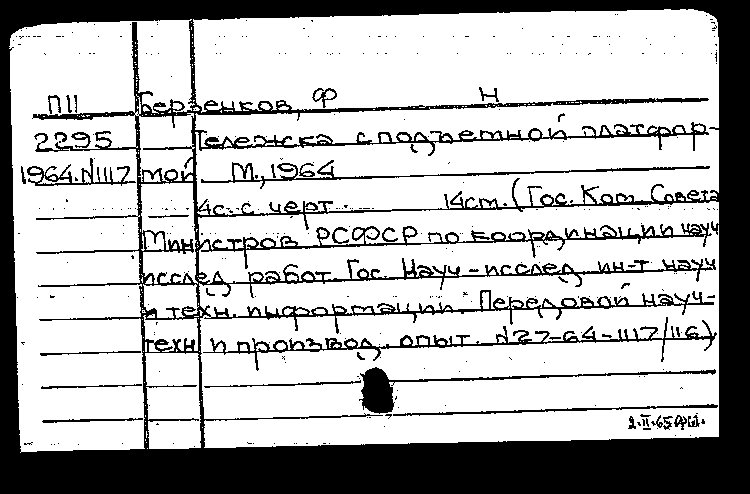 П11 Берзенков, Ф Н
2295 Тележка с подъемной платфор-
1964.N1117 мой. М., 1964
4с. с черт. 14см. (Гос. Ком. Совета
Министров РСФСР по координации науч
исслед. работ. Гос. Науч-исслед. ин-т науч
и техн. информации. Передовой науч-
техн и производ. опыт. N27-64-1117/116)
2.II.65